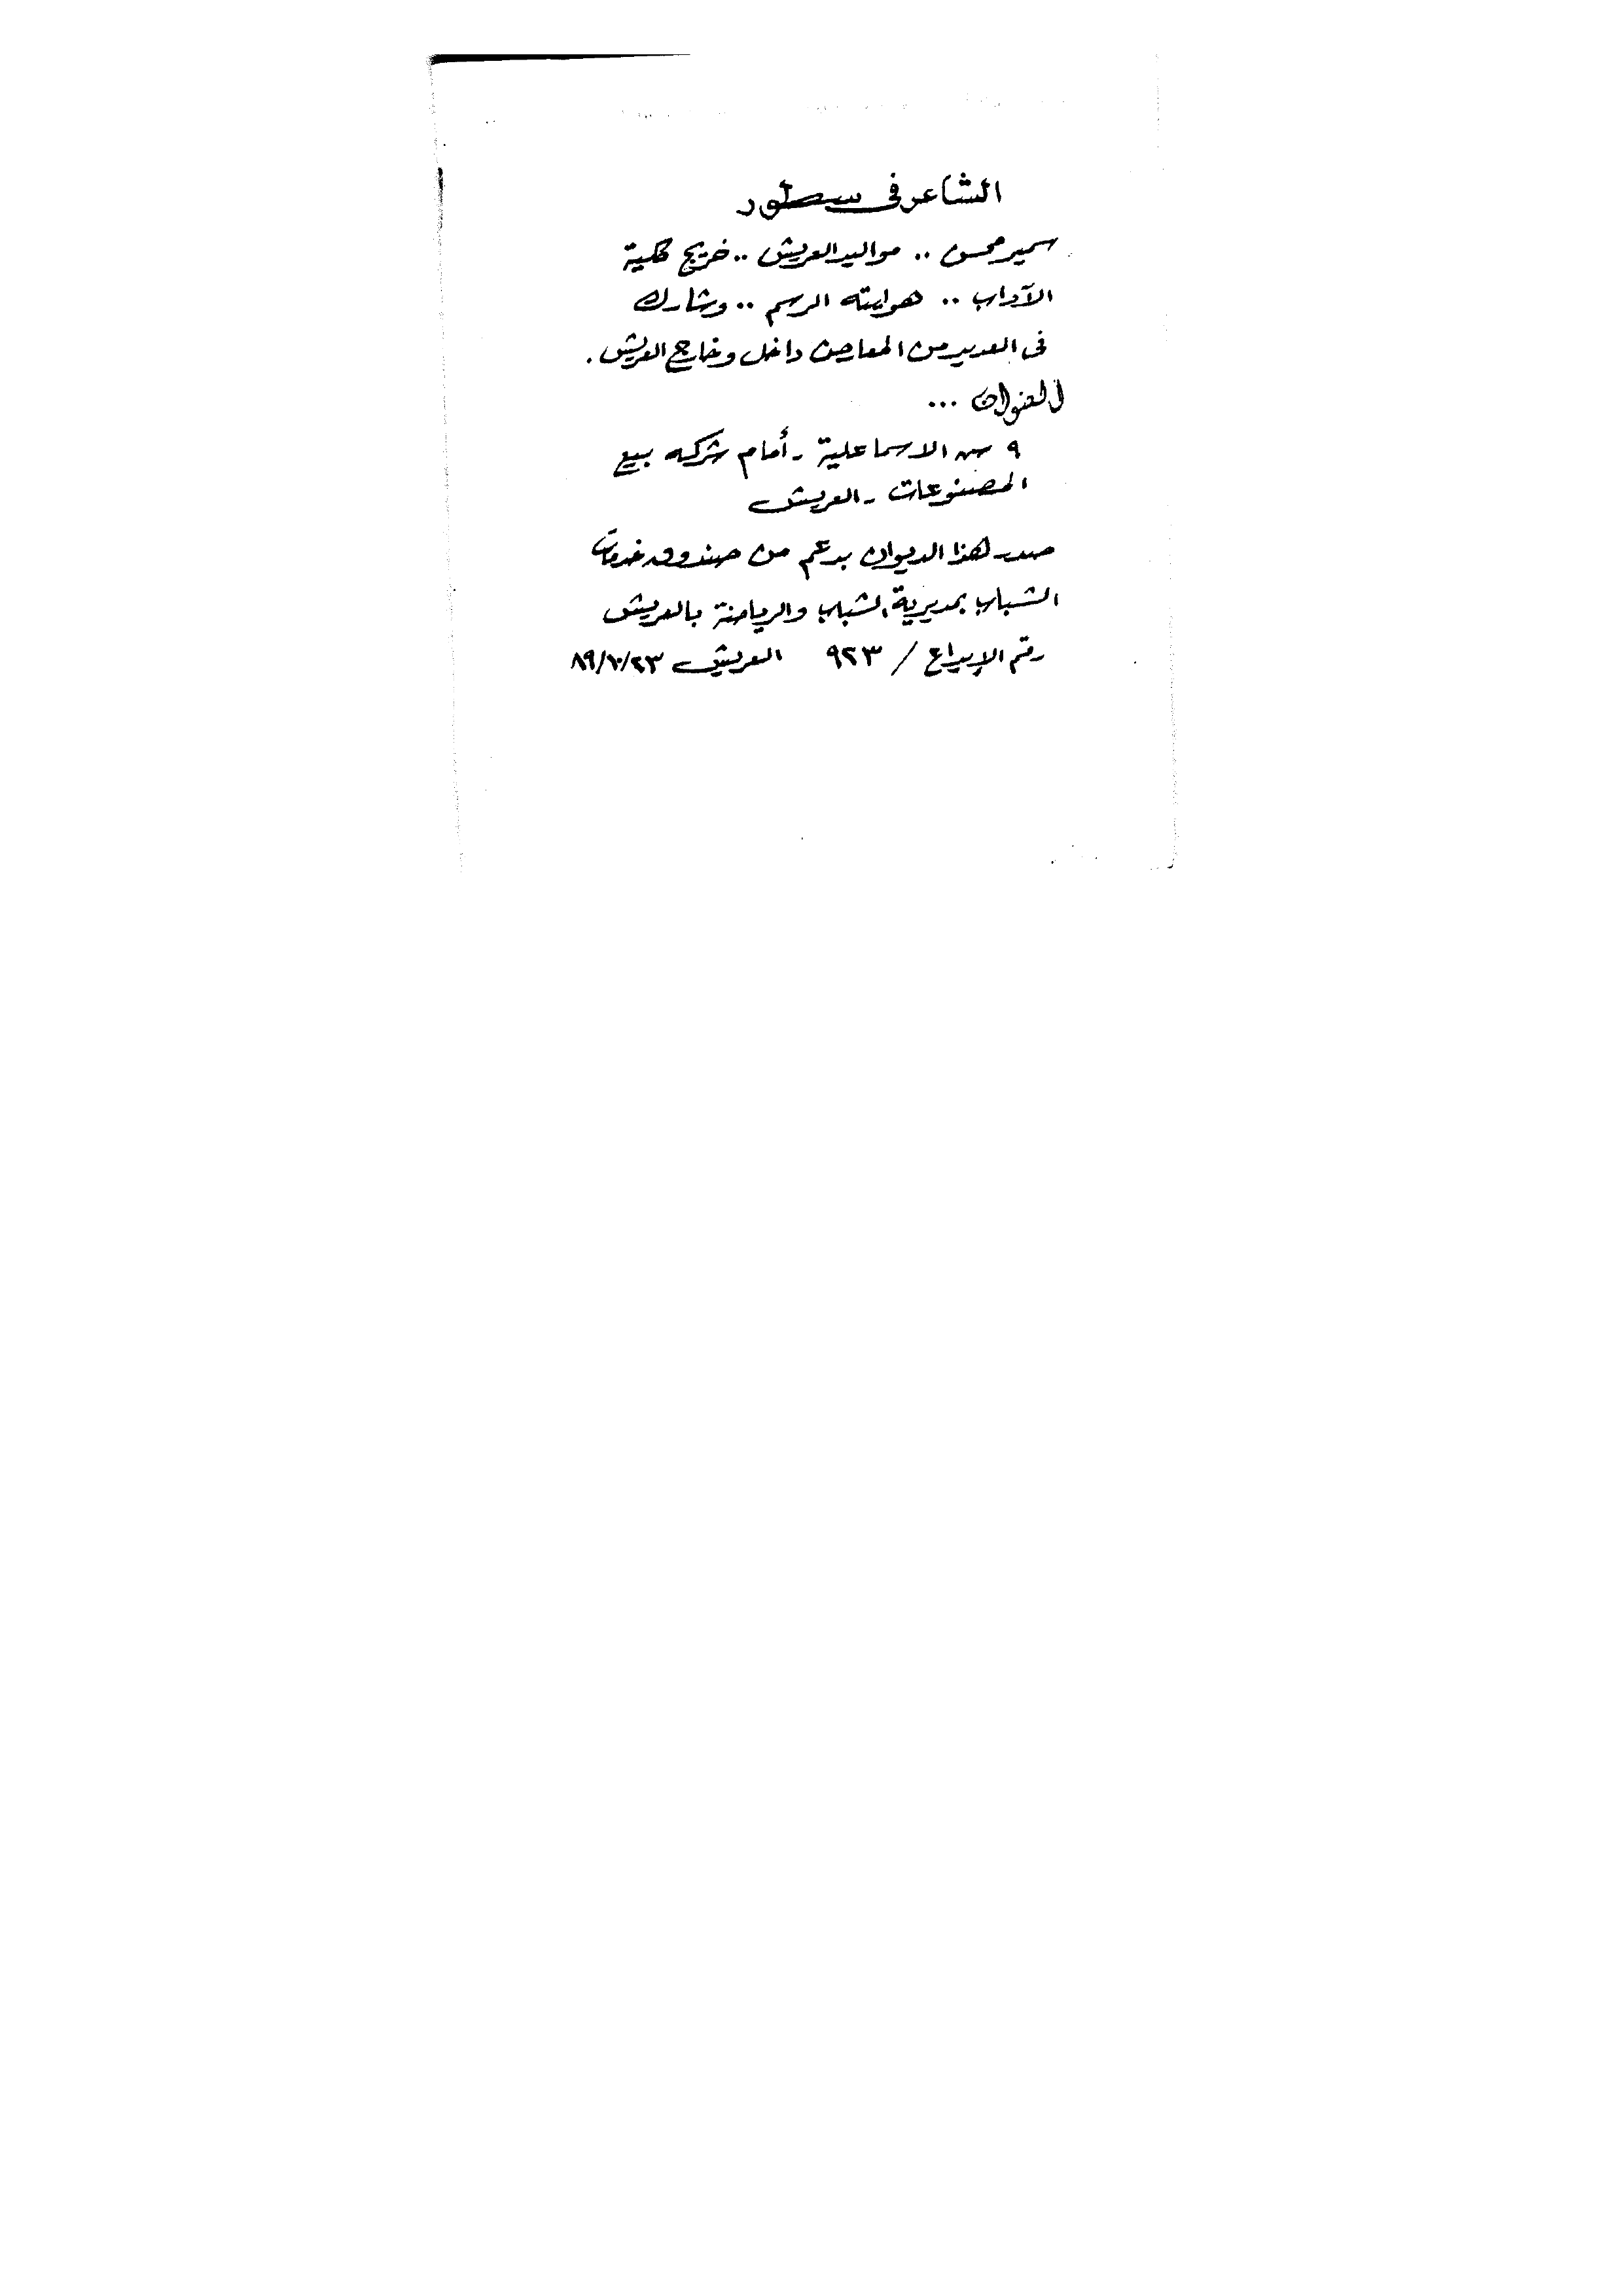 الشاعر فى سطور
سمير محسن .. مواليد العريش .. خريج كلية
الآداب .. هوايته الرسم .. وشارك
فى العديد من المعارض داخل وخارج العريش .
العنوان ...
٩ ش الاسماعلية - أمام شركه بيع
المصنوعات - العريش
صدر هذا الديوان بدعم من صندوق خدمات
الشباب بمديرية الشباب والرياضة بالعريش
رقم الإيداع / ٩٢٣ العريش